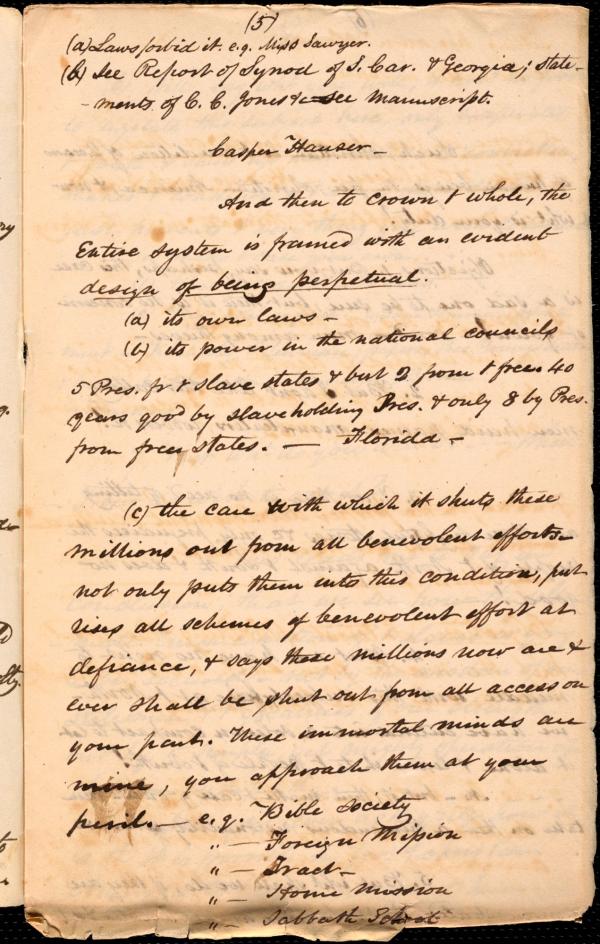 (5)
(a) Laws forbid it. e.g. Miss Sawyer.
(b) See Report of Synod of S. Car. & Georgia; state-
-ments of C. C. Jones &c see manuscript.
Casper Hauser -
And then to crown & whole, the
Entire system is framed with an evident
design of being perpetual.
(a) its own laws -
(b) its power in the national councils
5 Pres. fr & slave states & but 2 from & free. 40
years gov'd by slaveholding Pres. & only 8 by Pres.
from free states. — Florida -
(c) the care with which it shuts these
millions out from all benevolent efforts -
not only puts them into this condition, but
rises all schemes of benevolent effort at
defiance, & says these millions now are &
ever shall be shut out from all access on
your part. These immortal minds are
mine, you approach them at your
peril. — e.g. Bible Society
" — Foreign Mission
" — Tract -
" — Home Mission
" — Sabbath School